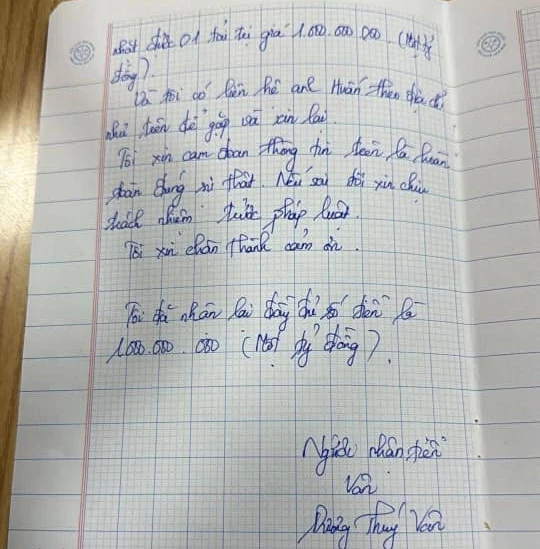 nhặt được 01 túi trị giá 1.000.000.000. (Một tỷ
đồng).
Và tôi có liên hệ anh Huấn theo địa chỉ
như trên để gặp và xin lại.
Tôi xin cam đoan thông tin trên là hoàn
toàn đúng sự thật. Nếu sai tôi xin chịu
trách nhiệm trước pháp luật.
Tôi xin chân thành cảm ơn.
Tôi đã nhận lại đầy đủ số tiền là
1.000.000.000 (Một tỷ đồng).
Người nhận tiền
Vân
Thuý Vân